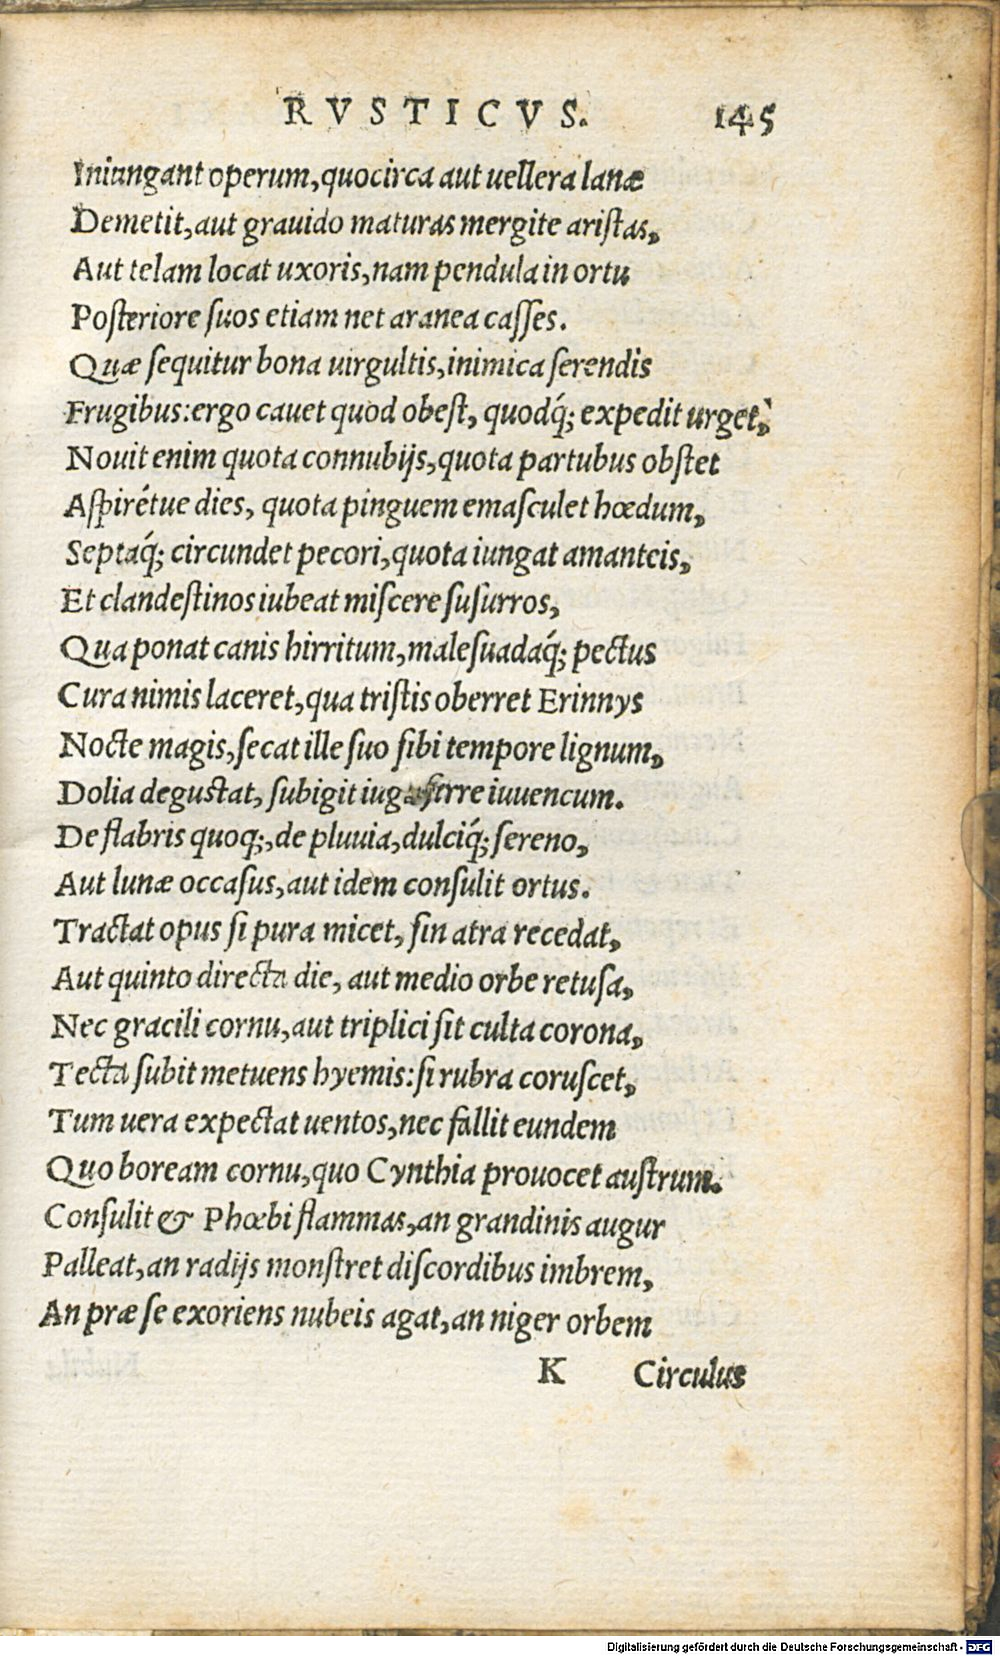 RVSTICVS. 145
Iniungant operum, quocirca aut uellera lanæ
Demetit, aut grauido maturas mergite ariſtas,
Aut telam locat uxoris, nam pendula in ortu
Poſteriore ſuos etiam net aranea caſſes.
Quæ ſequitur bona uirgultis, inimica ſerendis
Frugibus: ergo cauet quod obeſt, quodq́; expedit urget,
Nouit enim quota connubijs, quota partubus obſtet
Aſpirétue dies, quota pinguem emaſculet hœdum,
Septaq́; circundet pecori, quota iungat amanteis,
Et clandeſtinos iubeat miſcere ſuſurros,
Qua ponat canis hirritum, maleſuadaq́; pectus
Cura nimis laceret, qua triſtis oberret Erinnys
Nocte magis, ſecat ille ſuo ſibi tempore lignum,
Dolia deguſtat, ſubigit iuga ferre iuuencum.
De flabris quoq;, de pluuia, dulciq́; ſereno,
Aut lunæ occaſus, aut idem conſulit ortus.
Tractat opus ſi pura micet, ſin atra recedat,
Aut quinto directa die, aut medio orbe retuſa,
Nec gracili cornu, aut triplici ſit culta corona,
Tecta ſubit metuens hyemis: ſi rubra coruſcet,
Tum uera expectat uentos, nec fallit eundem
Quo boream cornu, quo Cynthia prouocet auſtrum.
Conſulit & Phœbi flammas, an grandinis augur
Palleat, an radijs monſtret diſcordibus imbrem,
An præ ſe exoriens nubeis agat, an niger orbem
K Circulus
Digitalisierung gefördert durch die Deutsche Forschungsgemeinschaft - DFG